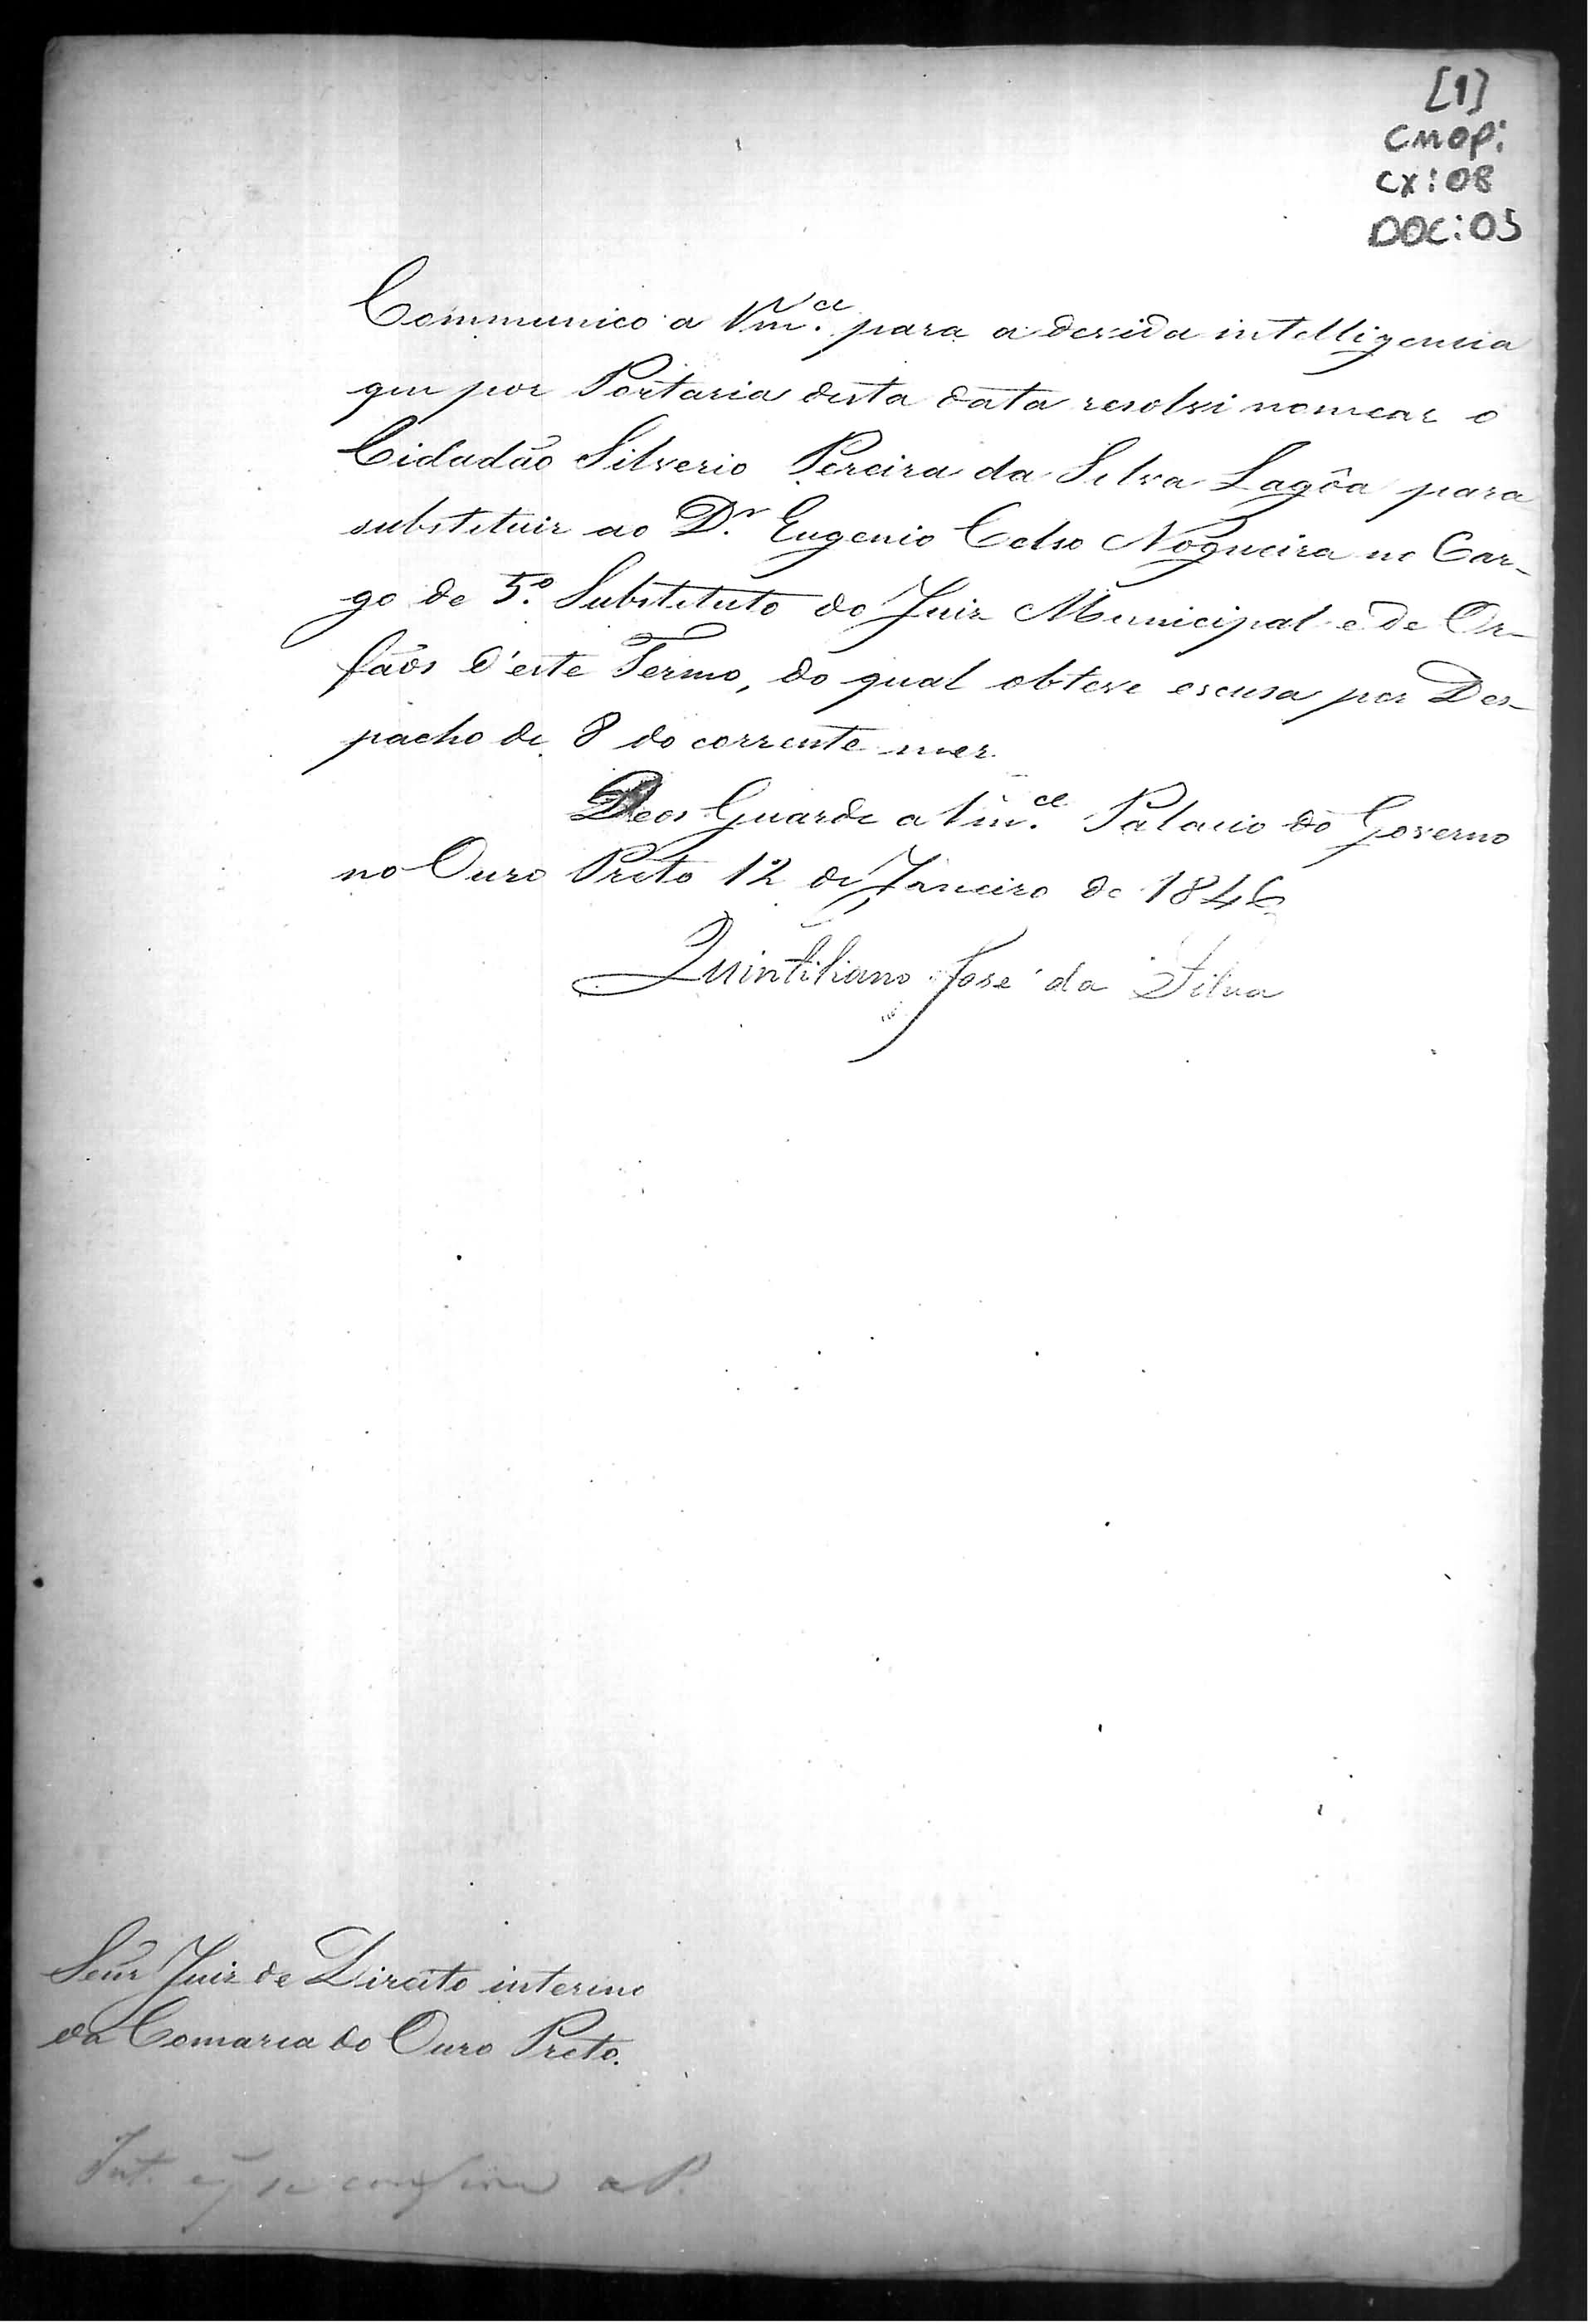 [1]
CMOP:
CX:08
DOC:05
Communico a Vm.ce para a devida intelligencia
que por Portaria desta data resolvi nomear o
Cidadão Silverio Pereira da Silva Lagôa para
substituir ao D.r Eugenio Celso Nogueira no Car-
go de 5.º Substituto do Juiz Municipal e de Or-
fãos d'este Termo, do qual obteve escusa por Des-
pacho de 8 do corrente mez.
Deos Guarde a Vm.ce Palacio do Governo
no Ouro Preto 12 de Janeiro de 1846
Quintiliano José da Silva
Senr Juiz de Direito interino
da Comarca do Ouro Preto.